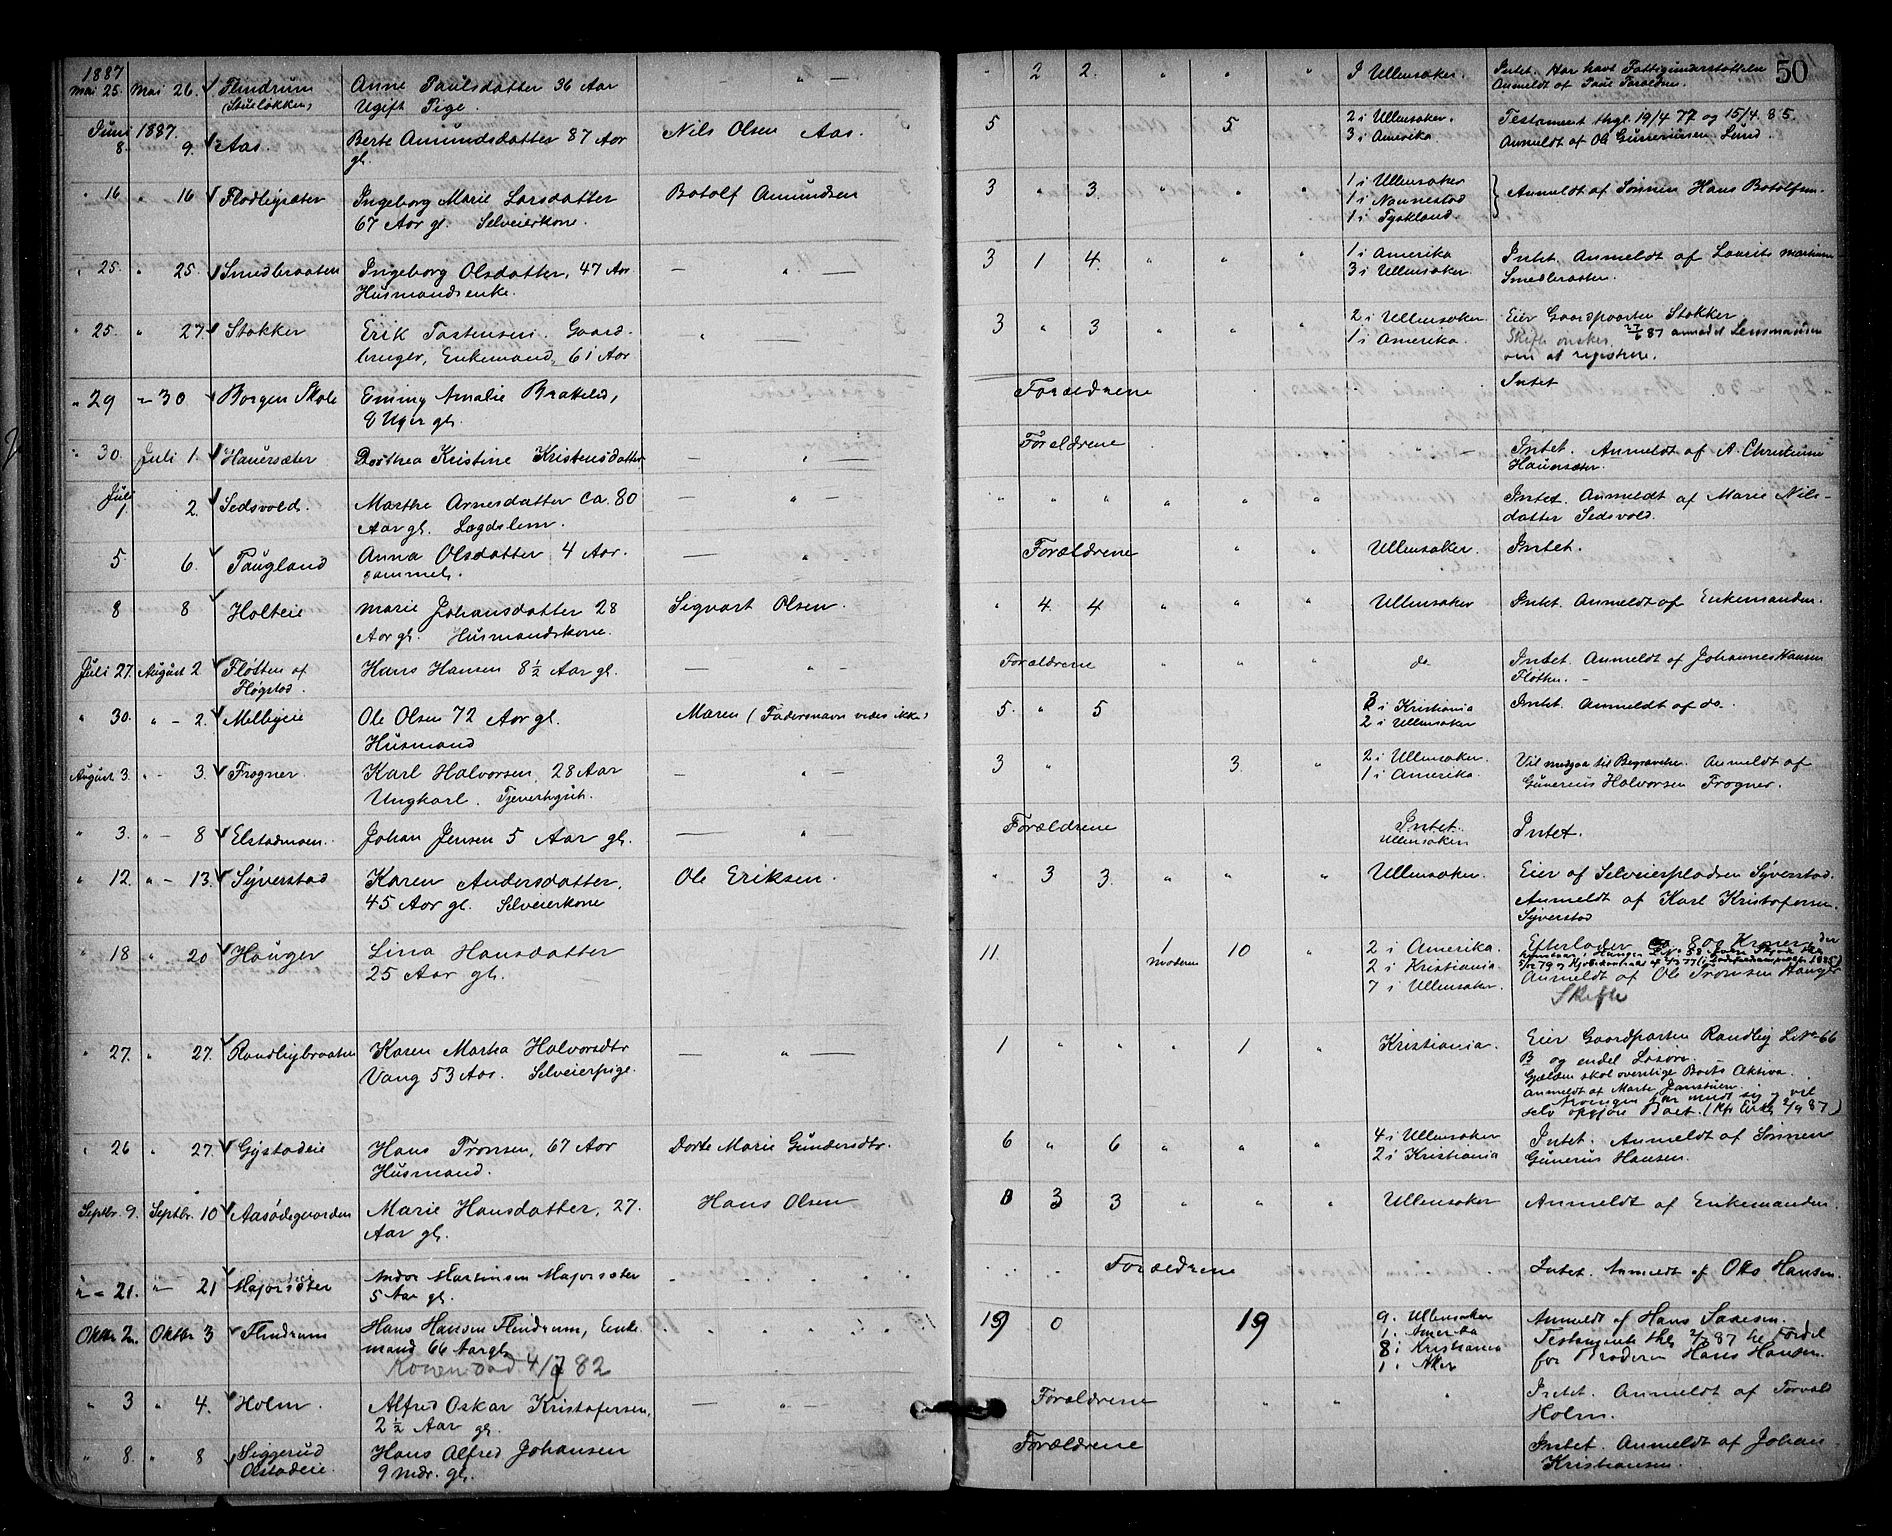 50
1887
Mai 25. Mai 26. Flindrum Anne Paulsdatter 36 Aar " 2 2. " " " I Ullensaker. Intet. Har havt Fattigunderstøttelse
(Stueløkken) Ugift Pige. Anmeldt af Paul
Juni 1887.
8. 9. Aas. Berte Amundsdatter 87 Aar Nils Olsen Aas. 5 5. 2 i Ullensaker. Testament thgl. 19/4 77 og 15/4 85.
gl. 3 i Amerika. Anmeldt af Ole Gunerius Lund.
" 16 " 16 Flodbysæter Ingeborg Marie Larsdatter Botolf Amundsen 3 " 3. " " " 1 i Ullensaker
67 Aar gl. Selveierkone. 1 i Nannestad Anmeldt af Sønnen Hans Botolfsen.
1 i Tyskland.
" 25. " 25. Smedbraaten Ingeborg Olsdatter, 47 Aar — " — 3 1 4. " " " 1 i Amerika Intet. Anmeldt af Laurits Martinsen
Husmandsenke. 3 i Ullensaker. Smedbraaten.
" 25. " 27. Stokker Erik Tostensen. Gaard- " 3 " 3 " " " 2 i Ullensaker. Eier Gaardparten Stokker
bruger, Enkemand, 61 Aar 1 i Amerika. Skifte ønskes. 27/6 87 anmodet Lensmanden
om at registrere.
" 29 " 30 Borgen Skole Emmy Amalie Brakelid, — " — Forældrene Intet
8 Uger gl.
" 30. Juli 1. Hauersæter Dorthea Kristine Kristensdatter — " — Forældrene " — Intet. Anmeldt af A. Christiansen
Hauersæter.
Juli
1 2. Sedsvold. Marthe Arnesdatter ca. 80 — " — " " " " " " Intet. Anmeldt af Marie Nils-
Aar gl. Lægdslem. datter Sedsvold.
5 6. Paugland Anna Olsdatter 4 Aar. — " Forældrene " " Ullensaker. Intet.
gammel.
8 8 Holteie Marie Johansdatter 28 Sigvart Olsen. " 4. 4 " " " Ullensaker Intet. Anmeldt af Enkemanden.
Aar gl. Husmandskone.
Juli 27. August 2 Fløtten af Hans Hansen 8 1/2 Aar gl. — " — Forældrene " " " do Intet. Anmeldt af Johannes Hansen
Fløgstad. Fløtten. —
" 30. " — 2. Melbyeie Ole Olsen 72 Aar gl. Maren (Fadersnavn vides ikke) 5. " 5 3 i Kristiania Intet. Anmeldt af do.
Husmand 2 i Ullensaker
August 3. " — 3. Frogner Karl Halvorsen, 28 Aar — " — 3 " 3. " 2 i Ullensaker. Vil medgaa til Begravelse. Anmeldt af
Ungkarl. Tjenestegut. 1 i Amerika. Gunerius Halvorsen Frogner.
" 3. " — 8 Elstadmoen. Johan Jensen 5 Aar gl. — " — Forældrene Intet. Intet.
Ullensaker
" 12. " — 13. Syverstad Karen Andersdatter. Ole Eriksen. " 3 3. " " " Ullensaker. Eier af Selveierpladsen Syverstad.
45 Aar gl. Selveierkone Anmeldt af Karl Kristofersen.
Syverstad
" 18 " 20 Hauger Lina Hansdatter 11. 1 10 " 2 i Amerika. Efterlader ca 800 Kroner, der
25 Aar gl. moderen 2 i Kristiania.
7 i Ullensaker. Anmeldt af Ole Tronsen Hauger
Skifte
" 27. " 27. Randbybraaten Karen Marta Halvorsdtr — " — 1 " " " 1 " Kristiania. Eier Gaardparten Randby L.No 66
Vang 53 Aar. Selveierpige. B og endel Løsøre.
Gjælden skal overstige Boets Aktiva.
Anmeldt af Marte Jonstuen.
Arvingen har meldt sig og vil
selv opgjøre Boet. 2/9 87)
" 26 " 27. Gystadeie Hans Tronsen, 67 Aar Dorte Marie Gundersdtr. 6 " 6 " " " 4 i Ullensaker Intet. Anmeldt af Sønnen
Husmand. 2 i Kristiania Gunerus Hansen.
Septbr. 9. Septbr. 10 Aasødegaarden Marie Hansdatter, 27. Hans Olsen 0 3 3 " " " Ullensaker Anmeldt af Enkemanden.
Aar gl.
" — 21. " — 21 Majorsæter Andor Martinsen Majorsæter Forældrene Intet. Anmeldt af Otto Hansen.
5 Aar gl.
Oktbr 2. Oktbr 3 Flindrum Hans Hansen Flindrum, Enke- 19 0 19 9. Ullensaker Anmeldt af Hans
mand 66 Aar gl. 1. Amerika Testament thl 2/7 87 til Fordel
Konen død 4/7 82 8 i Kristiania for Broderen Hans Hansen.
1 i Aker
" 3 " 4. Holm. Alfred Oskar Kristofersen, — " — Forældrene " " " Intet. Anmeldt af Torvald
2 1/2 Aar gl. Holm.
" 8. " 8 Siggerud Hans Alfred Johansen Forældrene Intet. Anmeldt af Johan
Olstadeie. 9 mdr. gl. Kristiansen.